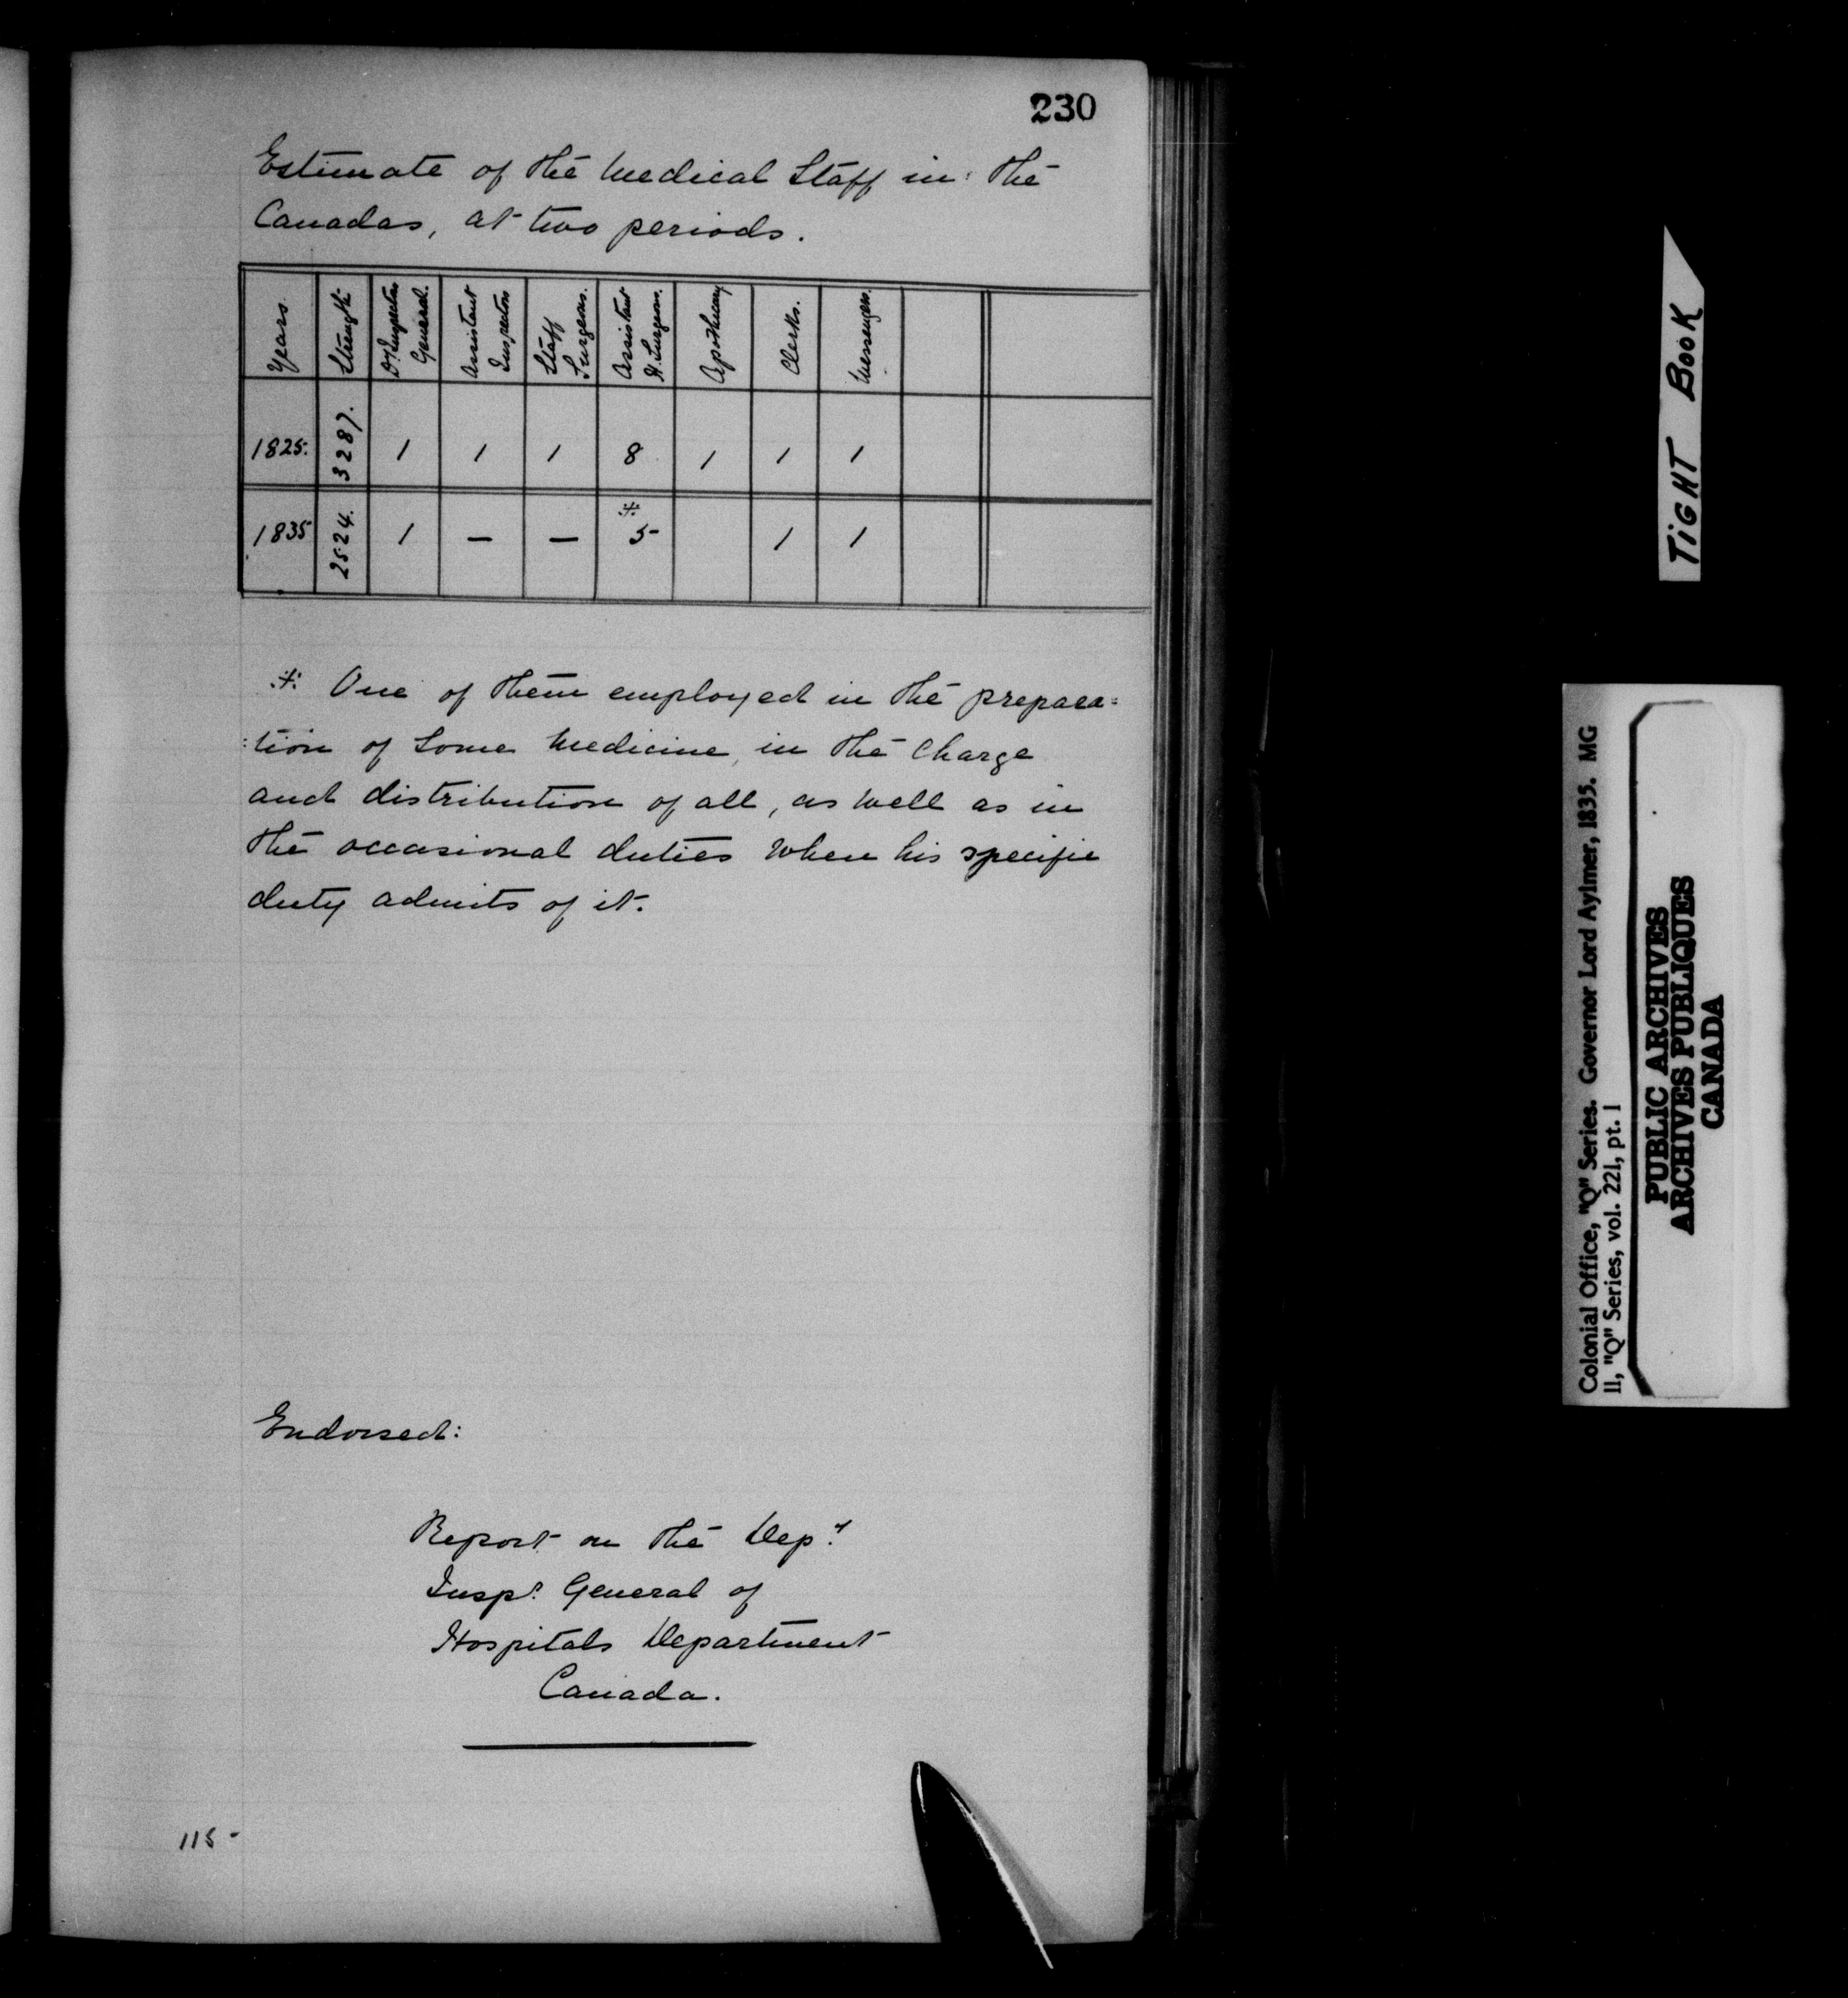 230
Estimate of the Medical Staff in the
Canadas, at two periods.
Years Strength Dy. Inspector General. Assistant Inspectors Staff Surgeons. Assistant H. Surgeons. Apothecary Clerks. Messengers.
1825. 3287. 1 1 1 8 1 1 1
1835 2524. 1 — — * 5 1 1
* One of them employed in the prepara=
=tion of some medicine, in the charge
and distribution of all, as well as in
the occasional duties when his specific
duty admits of it.
Endorsed:
Report on the Depy.
Inspr. General of
Hospitals Department
Canada.
115
TIGHT BOOK
Colonial Office, "Q" Series. Governor Lord Aylmer, 1835. MG
11, "Q" Series, vol. 221, pt. 1
PUBLIC ARCHIVES
ARCHIVES PUBLIQUES
CANADA